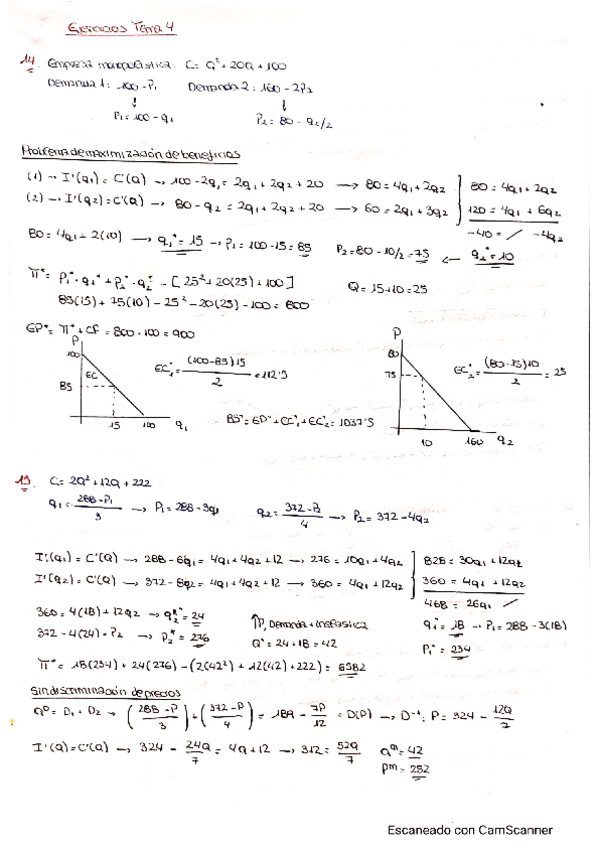 Ejercicios Tema 4
14. Empresa monopolística: C = Q² + 20Q + 100
Demanda 1: 100 - P₁ Demanda 2: 160 - 2P₂
↓ ↓
P₁ = 100 - q₁ P₂ = 80 - q₂/2
Problema de maximización de beneficios
(1) → I'(q₁) = C'(Q) → 100 - 2q₁ = 2q₁ + 2q₂ + 20 → 80 = 4q₁ + 2q₂ 80 = 4q₁ + 2q₂
(2) → I'(q₂) = C'(Q) → 80 - q₂ = 2q₁ + 2q₂ + 20 → 60 = 2q₁ + 3q₂ 120 = 4q₁ + 6q₂
-40 = / -4q₂
80 = 4q₁ + 2(10) → q₁* = 15 → P₁ = 100 - 15 = 85 P₂ = 80 - 10/2 = 75 ← q₂* = 10
π* = P₁*·q₁* + P₂*·q₂* - [25² + 20(25) + 100] Q = 15 + 10 = 25
85(15) + 75(10) - 25² - 20(25) - 100 = 800
EP* = π* + CF = 800 + 100 = 900
P
100
EC
85
15 100 q₁
EC₁* = (100-85)15 / 2 = 112'5
BS* = EP* + EC₁* + EC₂* = 1037'5
P
80
75
10 160 q₂
EC₂* = (80-75)10 / 2 = 25
15. C = 2Q² + 12Q + 222
q₁ = (288 - P₁)/3 → P₁ = 288 - 3q₁ q₂ = (372 - P₂)/4 → P₂ = 372 - 4q₂
I'(q₁) = C'(Q) → 288 - 6q₁ = 4q₁ + 4q₂ + 12 → 276 = 10q₁ + 4q₂ 828 = 30q₁ + 12q₂
I'(q₂) = C'(Q) → 372 - 8q₂ = 4q₁ + 4q₂ + 12 → 360 = 4q₁ + 12q₂ 360 = 4q₁ + 12q₂
468 = 26q₁ /
360 = 4(18) + 12q₂ → q₂* = 24 ↑P, Demanda + inelástica q₁* = 18 → P₁ = 288 - 3(18)
372 - 4(24) = P₂ → P₂* = 276 Q* = 24 + 18 = 42 P₁* = 234
π* = 18(234) + 24(276) - (2(42²) + 12(42) + 222) = 6582
Sin discriminación de precios
Q^D = D₁ + D₂ → ((288 - P)/3) + ((372 - P)/4) = 189 - 7P/12 = D(P) → D⁻¹: P = 324 - 12Q/7
I'(Q) = C'(Q) → 324 - 24Q/7 = 4Q + 12 → 312 = 52Q/7 Q^m = 42
Pm = 252
Escaneado con CamScanner